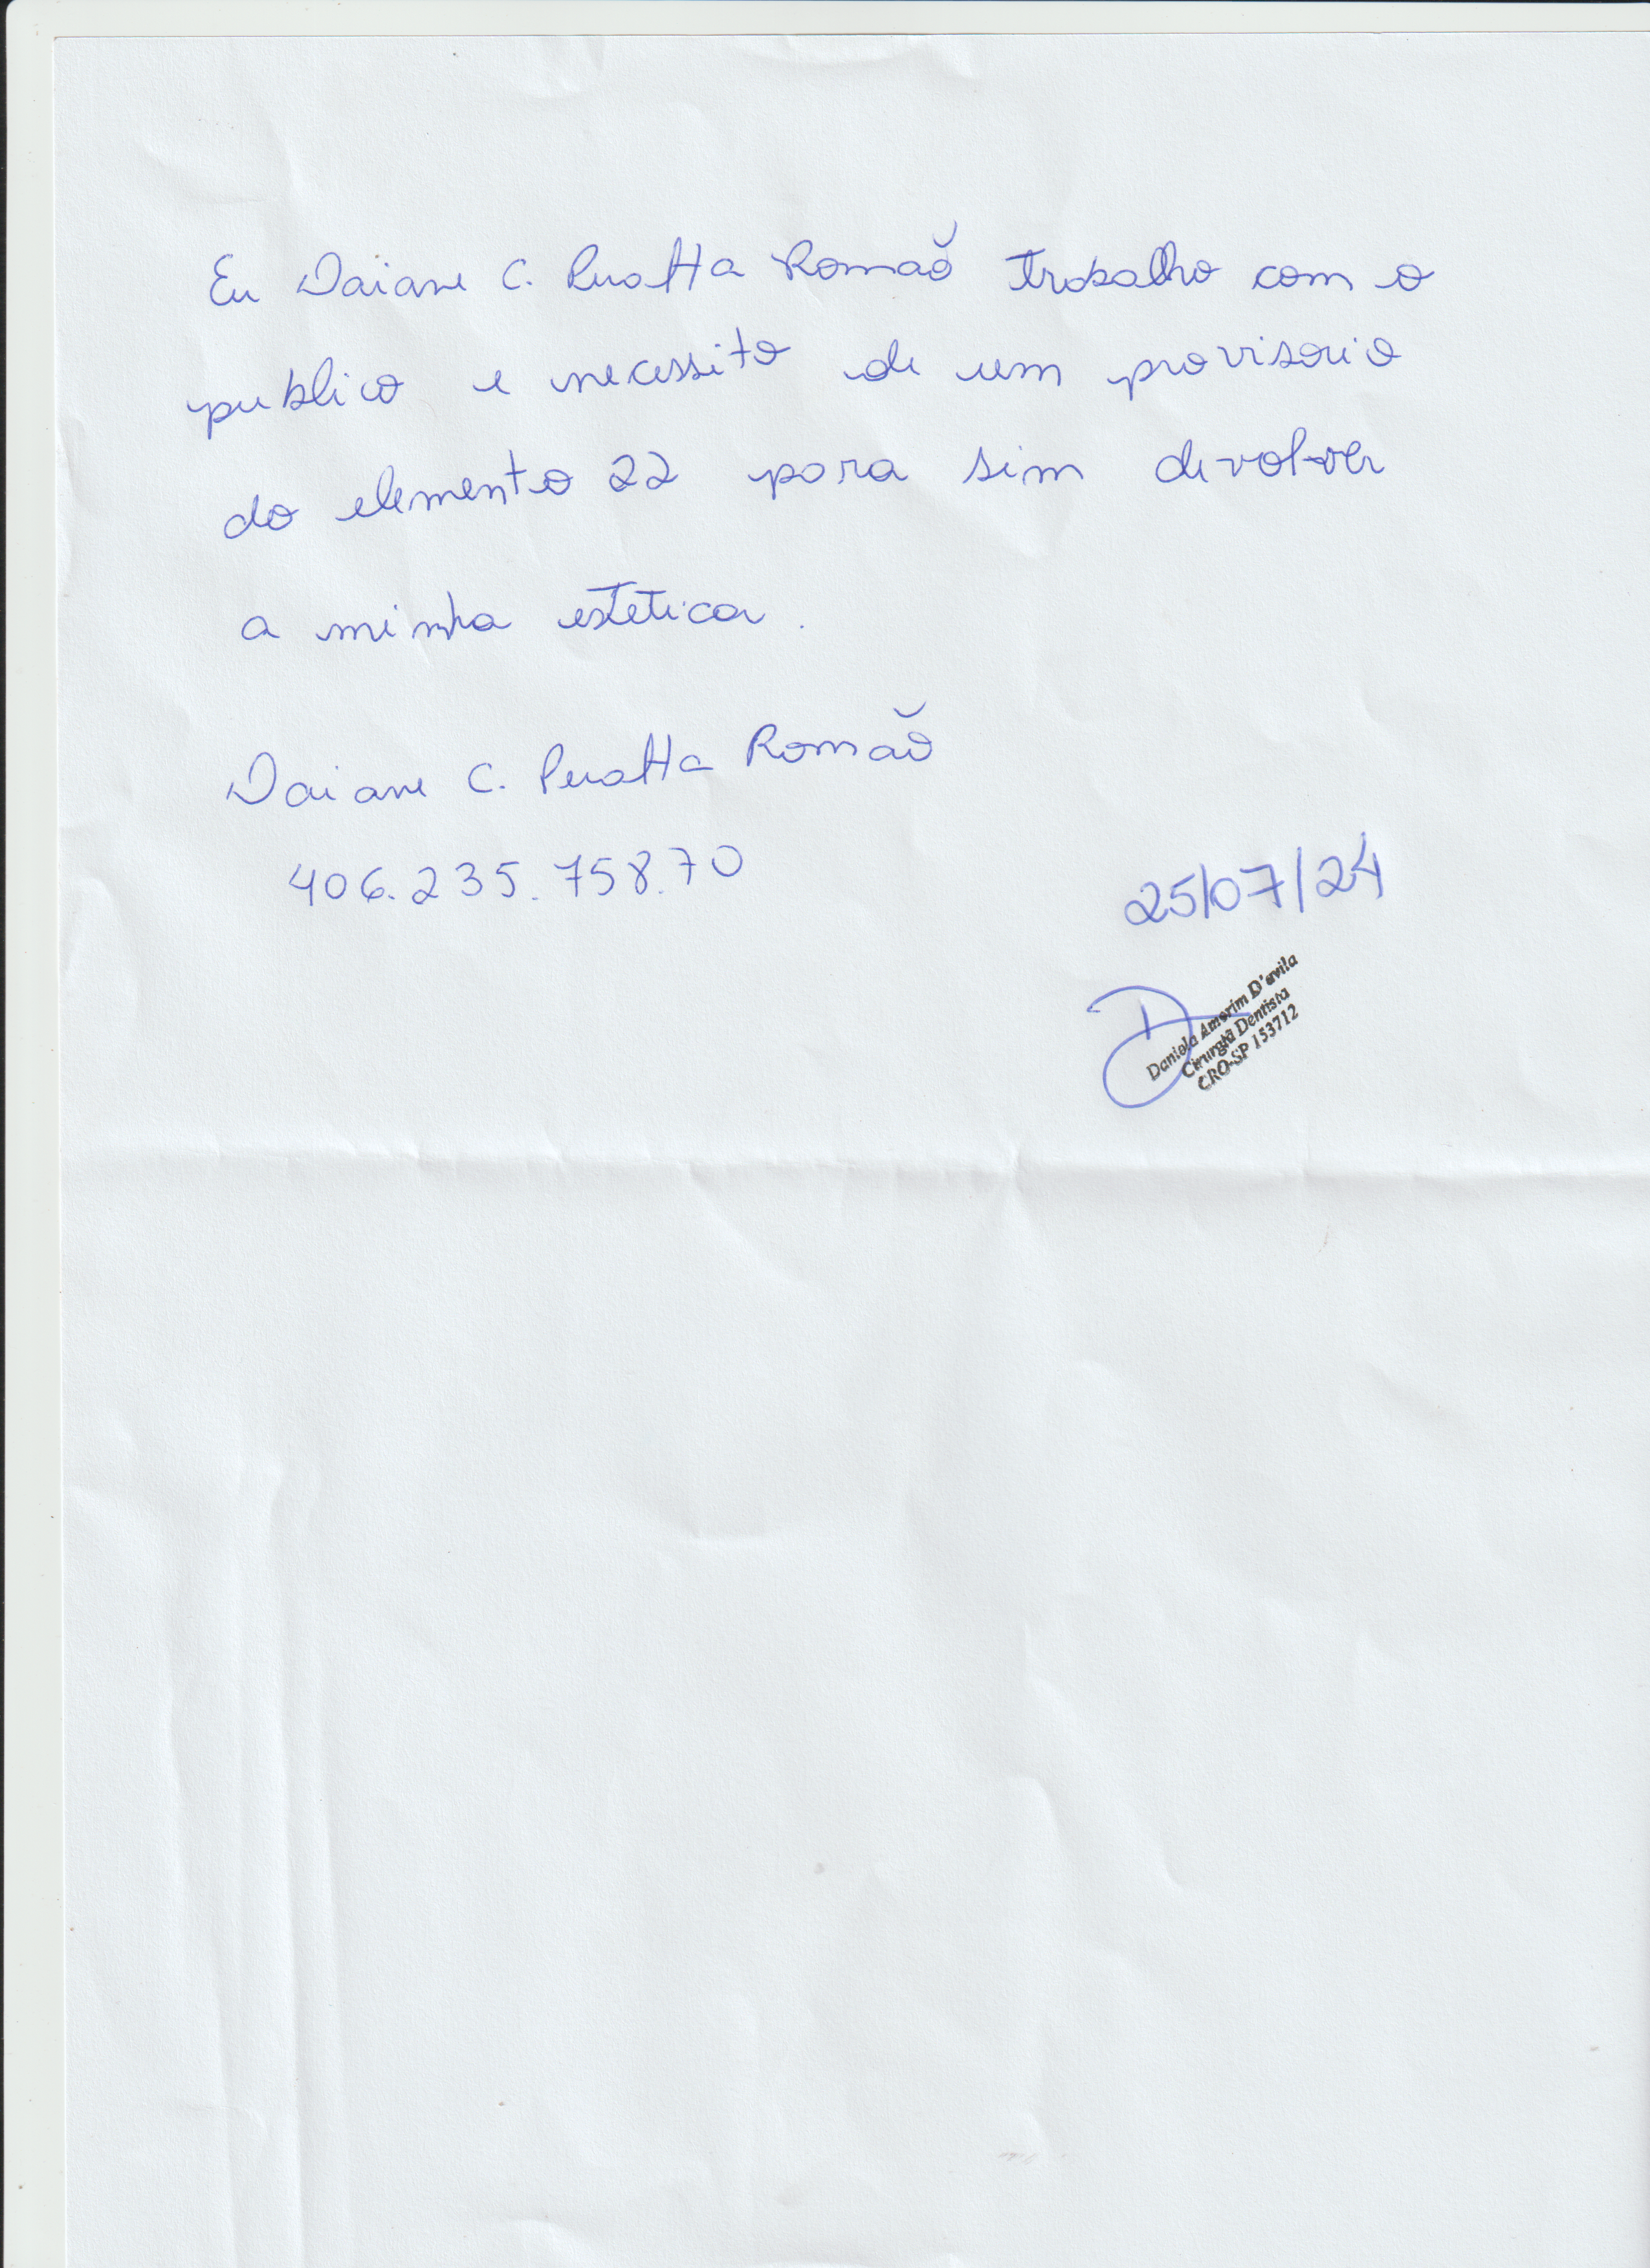 Eu Daiane C. Peratta Romão trabalho com o
publico e necessito de um provisorio
do elemento 22 para sim devolver
a minha estetica.
Daiane C. Peratta Romão
406.235.758.70
25/07/24
Daniela Amorim D'avila
Cirurgiã Dentista
CRO-SP 153712